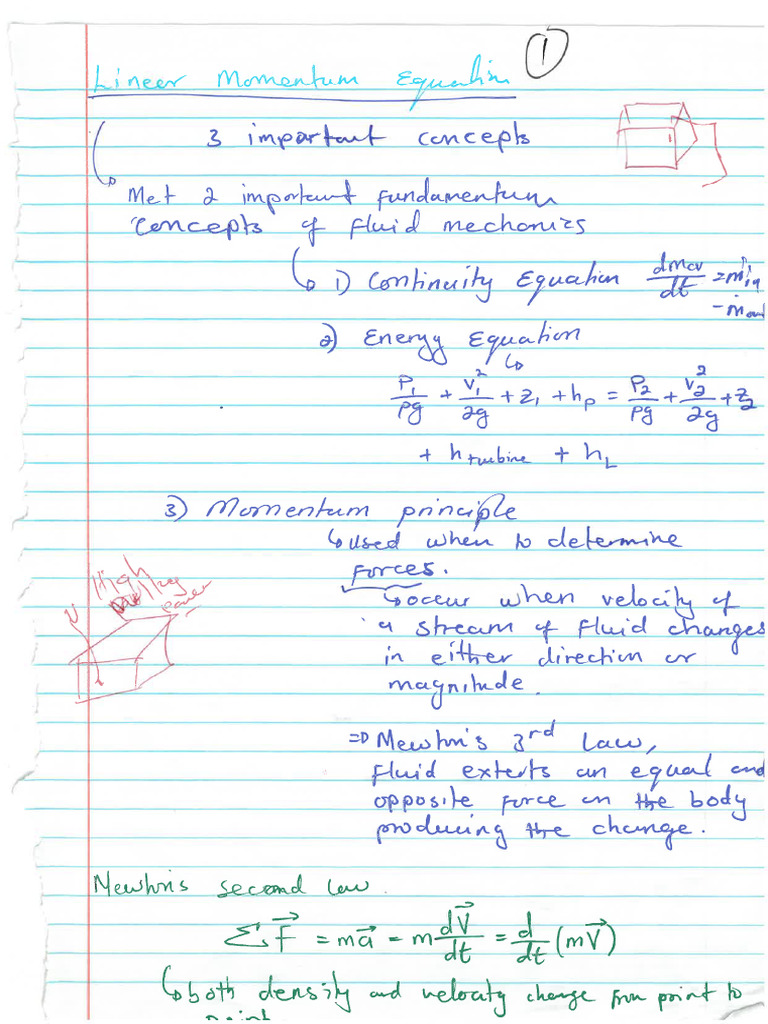 1
Lineer Momentum Equation
3 important concepts
Met 2 important fundamentum
concepts of fluid mechanics
1) Continuity Equation dmcv/dt = ṁin
- ṁout
2) Energy Equation
P1/ρg + V1²/2g + z1 + hp = P2/ρg + V2²/2g + z2
+ hturbine + hL
3) Momentum principle
used when to determine
forces.
High
power
occur when velocity of
a stream of fluid changes
in either direction or
magnitude.
⇒ Newton's 3rd Law,
fluid exterts an equal and
opposite force on the body
producing the change.
Newton's second law.
ΣF⃗ = ma⃗ = m dV⃗/dt = d/dt (mV⃗)
both density and velocity change from point to
point